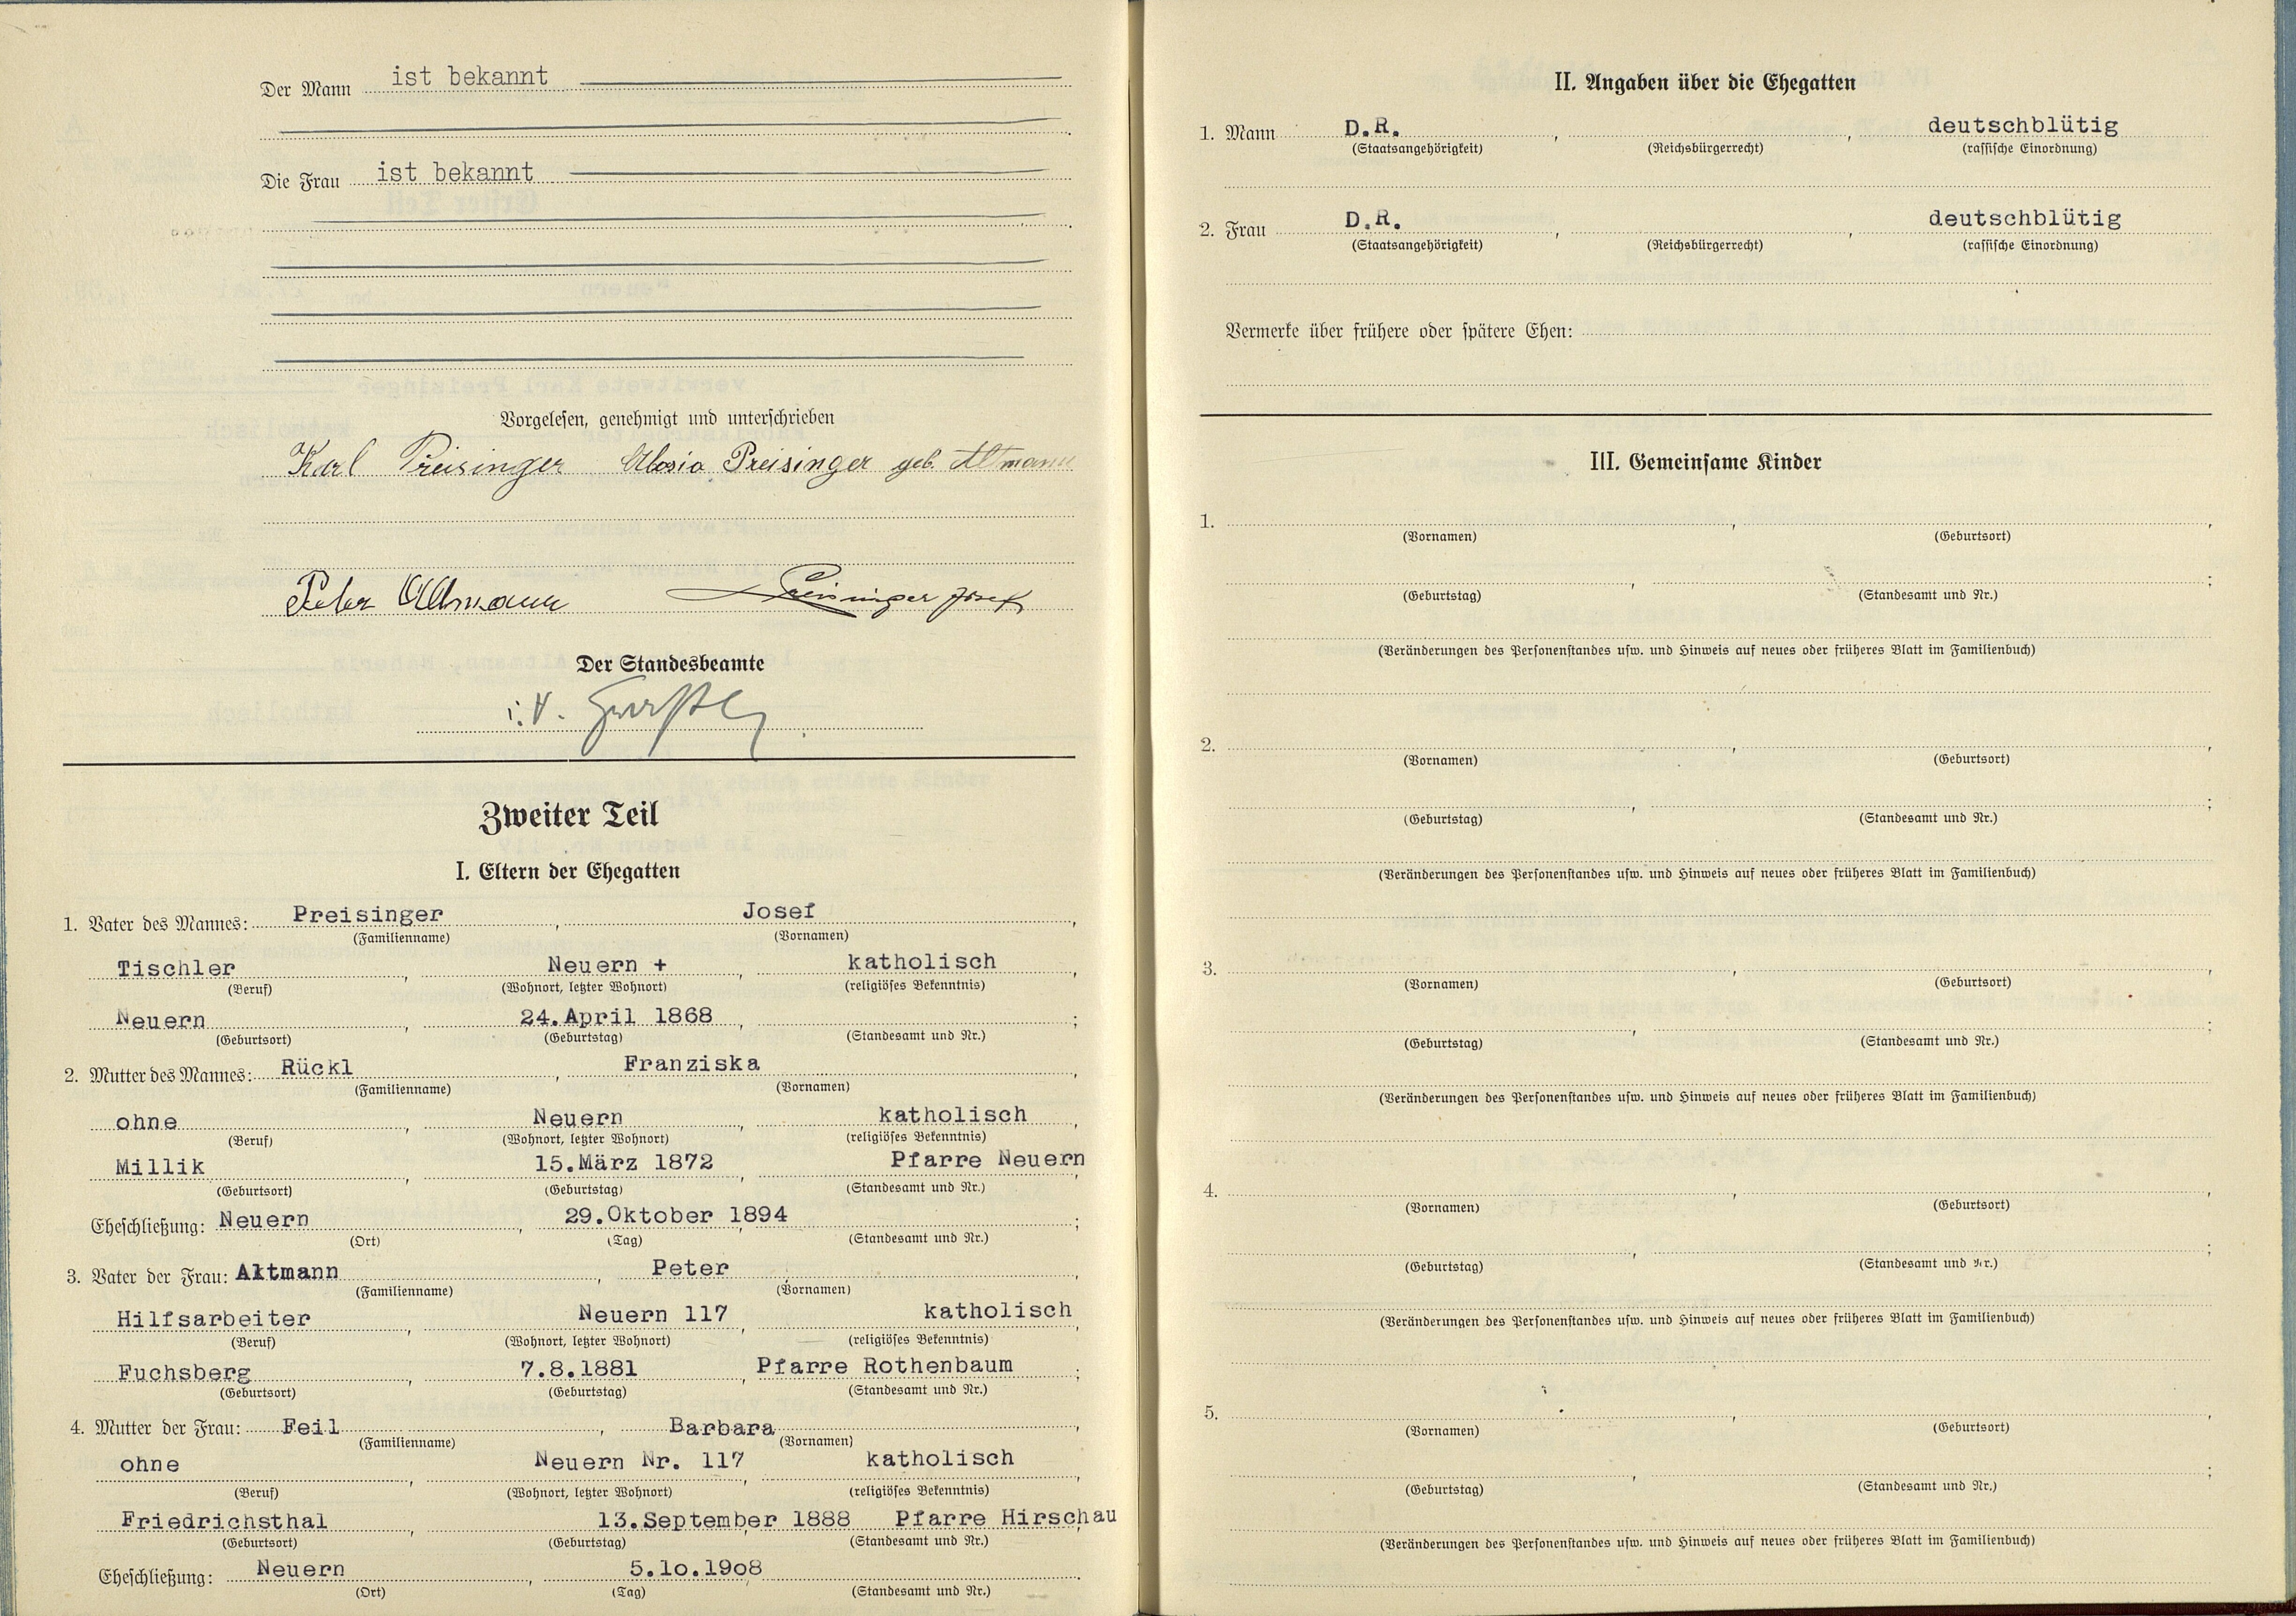 Der Mann ist bekannt
Die Frau ist bekannt
Vorgelesen, genehmigt und unterschrieben
Karl Preisinger Aloisia Preisinger geb. Altmann
Peter Altmann Preisinger Josef
Der Standesbeamte
i.V.
Zweiter Teil
I. Eltern der Ehegatten
1. Vater des Mannes: Preisinger, Josef,
(Familienname) (Vornamen)
Tischler, Neuern +, katholisch,
(Beruf) (Wohnort, letzter Wohnort) (religiöses Bekenntnis)
Neuern, 24.April 1868, ;
(Geburtsort) (Geburtstag) (Standesamt und Nr.)
2. Mutter des Mannes: Rückl, Franziska,
(Familienname) (Vornamen)
ohne, Neuern, katholisch,
(Beruf) (Wohnort, letzter Wohnort) (religiöses Bekenntnis)
Millik, 15.März 1872, Pfarre Neuern
(Geburtsort) (Geburtstag) (Standesamt und Nr.)
Eheschließung: Neuern, 29.Oktober 1894 ;
(Ort) (Tag) (Standesamt und Nr.)
3. Vater der Frau: Altmann, Peter,
(Familienname) (Vornamen)
Hilfsarbeiter, Neuern 117, katholisch,
(Beruf) (Wohnort, letzter Wohnort) (religiöses Bekenntnis)
Fuchsberg, 7.8.1881, Pfarre Rothenbaum ;
(Geburtsort) (Geburtstag) (Standesamt und Nr.)
4. Mutter der Frau: Feil, Barbara,
(Familienname) (Vornamen)
ohne, Neuern Nr. 117, katholisch,
(Beruf) (Wohnort, letzter Wohnort) (religiöses Bekenntnis)
Friedrichsthal, 13.September 1888, Pfarre Hirschau
(Geburtsort) (Geburtstag) (Standesamt und Nr.)
Eheschließung: Neuern, 5.10.1908.
(Ort) (Tag) (Standesamt und Nr.)
II. Angaben über die Ehegatten
1. Mann D.R., , deutschblütig
(Staatsangehörigkeit) (Reichsbürgerrecht) (rassische Einordnung)
2. Frau D.R., , deutschblütig
(Staatsangehörigkeit) (Reichsbürgerrecht) (rassische Einordnung)
Vermerke über frühere oder spätere Ehen:
III. Gemeinsame Kinder
1. , ,
(Vornamen) (Geburtsort)
, ;
(Geburtstag) (Standesamt und Nr.)
(Veränderungen des Personenstandes usw. und Hinweis auf neues oder früheres Blatt im Familienbuch)
2. , ,
(Vornamen) (Geburtsort)
, ;
(Geburtstag) (Standesamt und Nr.)
(Veränderungen des Personenstandes usw. und Hinweis auf neues oder früheres Blatt im Familienbuch)
3. , ,
(Vornamen) (Geburtsort)
, ;
(Geburtstag) (Standesamt und Nr.)
(Veränderungen des Personenstandes usw. und Hinweis auf neues oder früheres Blatt im Familienbuch)
4. , ,
(Vornamen) (Geburtsort)
, ;
(Geburtstag) (Standesamt und Nr.)
(Veränderungen des Personenstandes usw. und Hinweis auf neues oder früheres Blatt im Familienbuch)
5. , ,
(Vornamen) (Geburtsort)
, ;
(Geburtstag) (Standesamt und Nr.)
(Veränderungen des Personenstandes usw. und Hinweis auf neues oder früheres Blatt im Familienbuch)